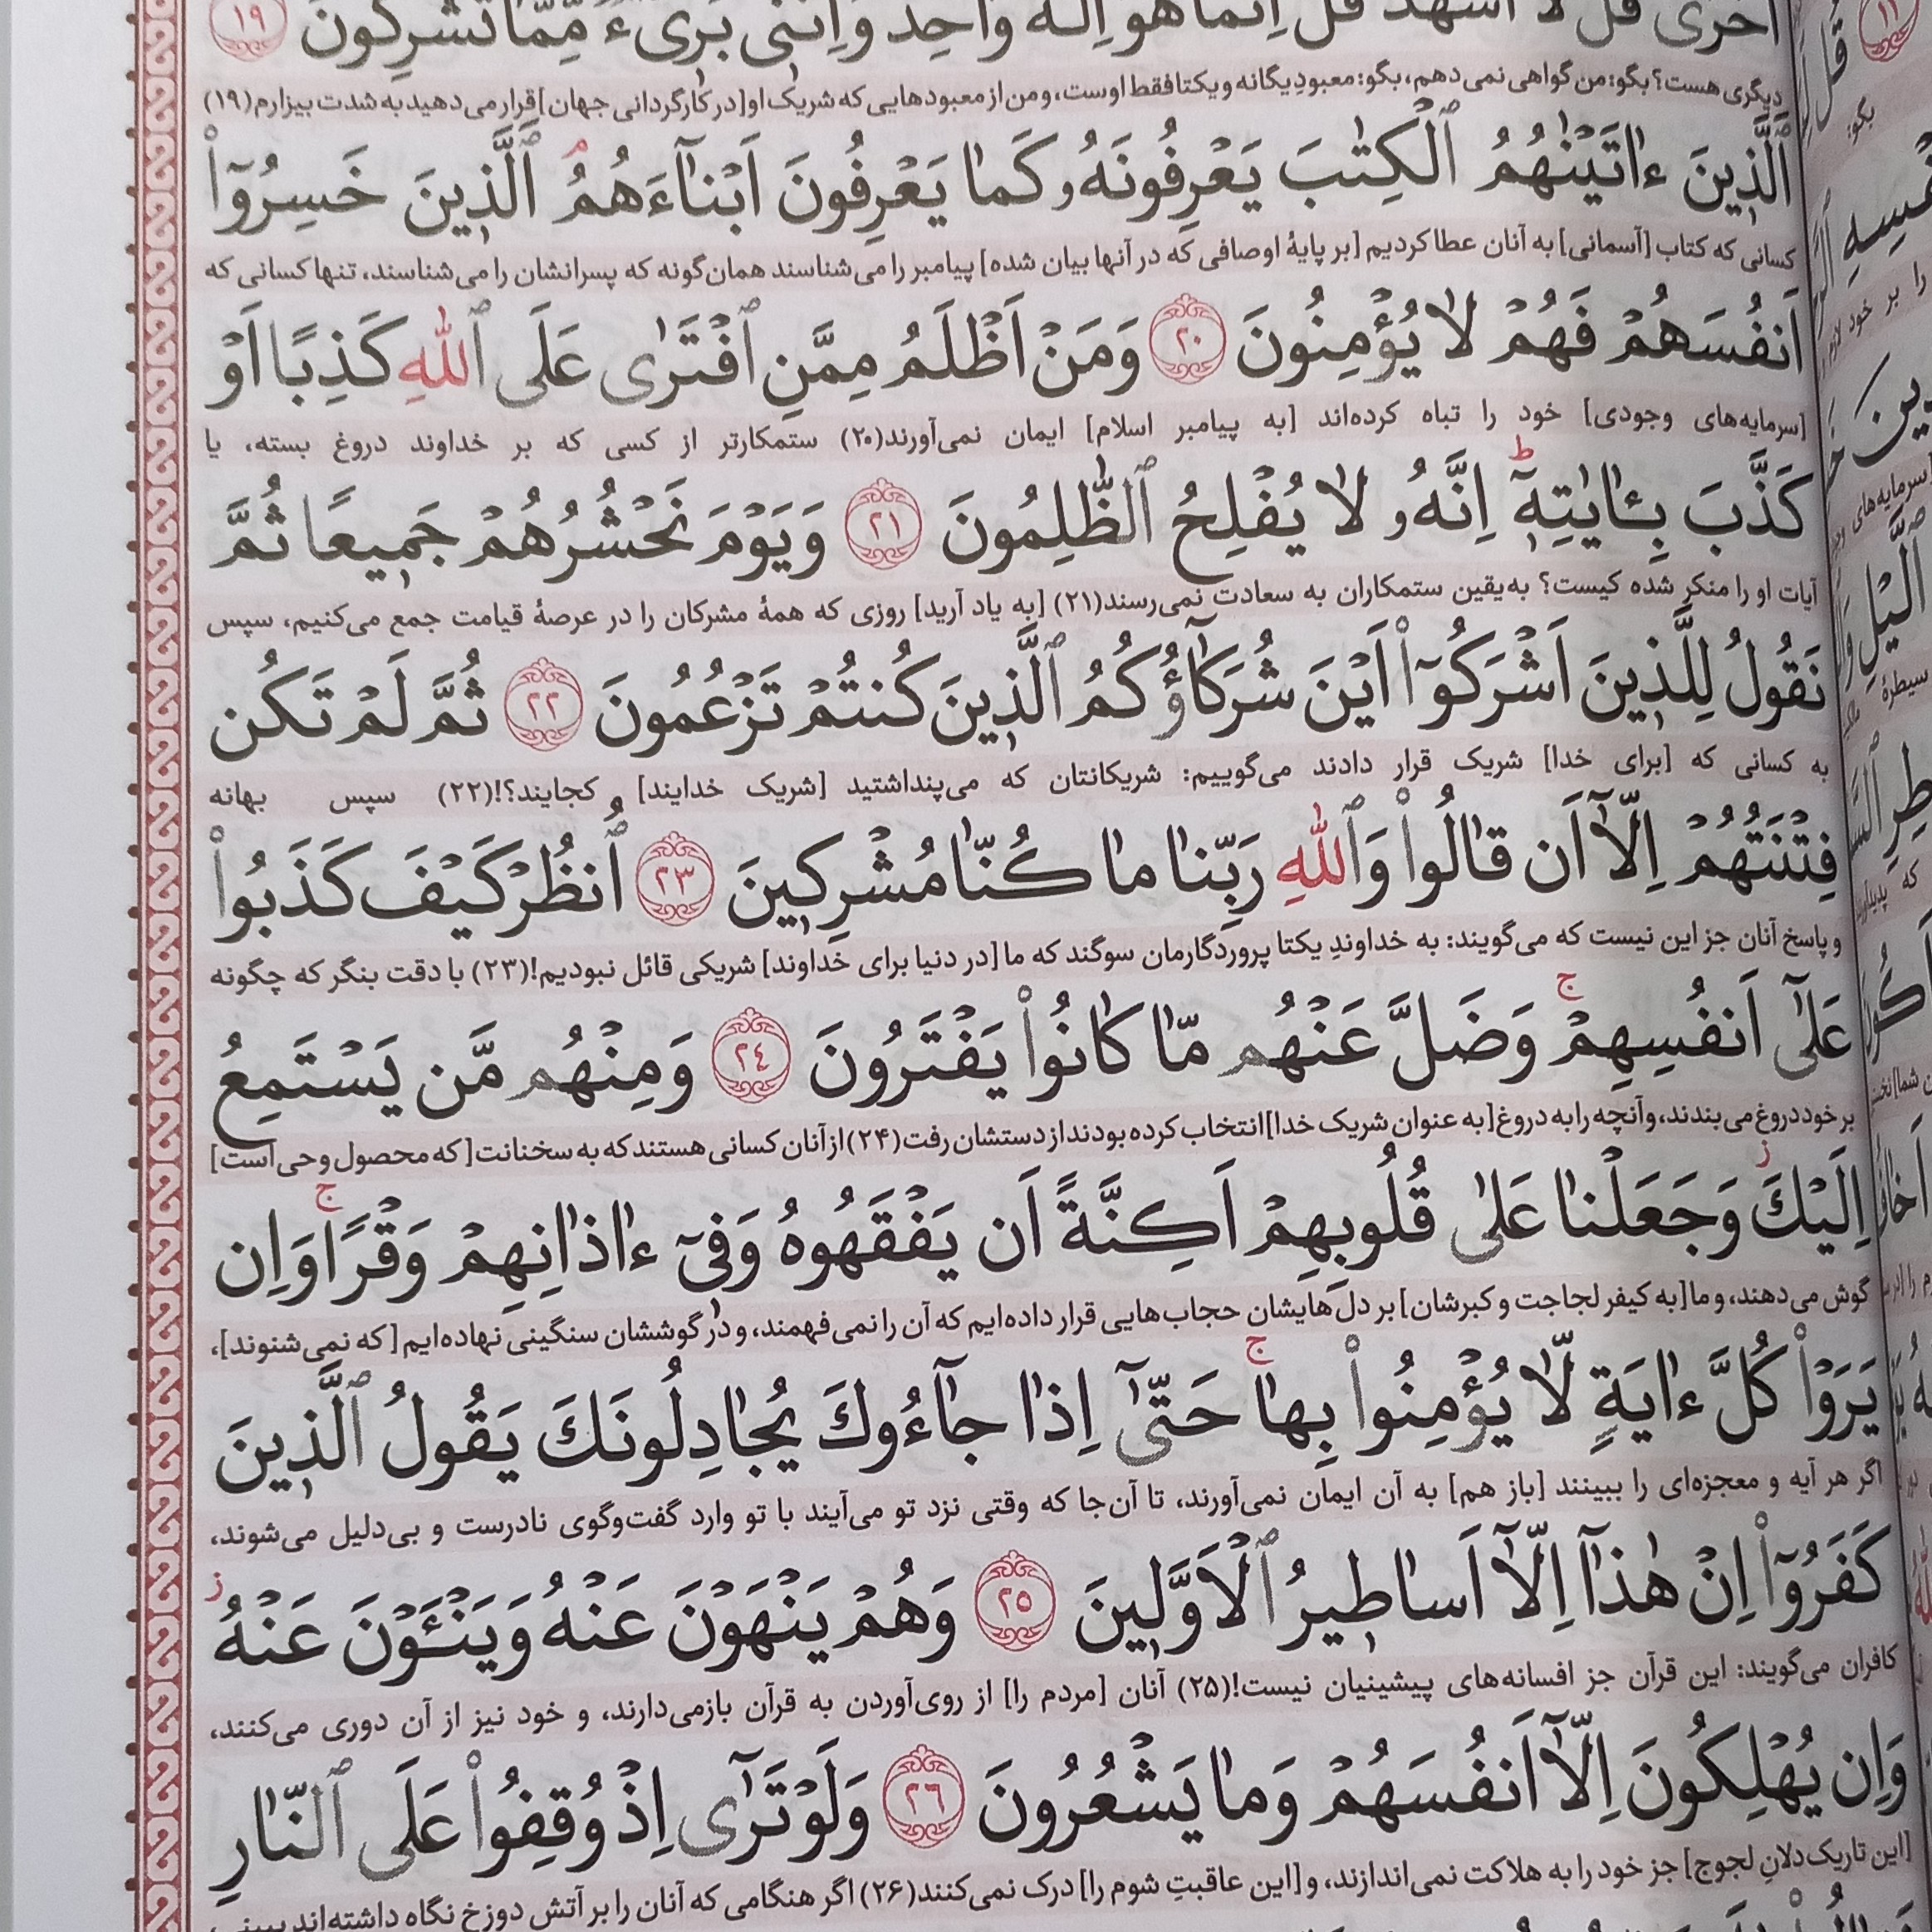 اُخْرىٰ قُلْ لَا اَشْهَدُ قُلْ اِنَّمَا هُوَ اِلٰهٌ وَاحِدٌ وَاِنَّنِى بَرِىءٌ مِمَّا تُشْرِكُونَ ١٩
دیگری هست؟ بگو: من گواهی نمی‌دهم، بگو: معبودِ یگانه و یکتا فقط اوست، و من از معبودهایی که شریک او [در کارگردانی جهان] قرار می‌دهید به شدت بیزارم(۱۹)
ٱلَّذِينَ ءٰاتَيْنٰهُمُ ٱلْكِتٰبَ يَعْرِفُونَهُۥ كَمٰا يَعْرِفُونَ اَبْنٰاۤءَهُمُ ۘ ٱلَّذِينَ خَسِرُوۤا۟
کسانی که کتاب [آسمانی] به آنان عطا کردیم [بر پایهٔ اوصافی که در آنها بیان شده] پیامبر را می‌شناسند همان‌گونه که پسرانشان را می‌شناسند، تنها کسانی که
اَنفُسَهُمْ فَهُمْ لٰا يُؤْمِنُونَ ٢٠ وَمَنْ اَظْلَمُ مِمَّنِ ٱفْتَرٰى عَلَى ٱللهِ كَذِبًا اَوْ
[سرمایه‌های وجودی] خود را تباه کرده‌اند [به پیامبر اسلام] ایمان نمی‌آورند(۲۰) ستمکارتر از کسی که بر خداوند دروغ بسته، یا
كَذَّبَ بِـٰٔايٰتِهِۤ ط اِنَّهُۥ لٰا يُفْلِحُ ٱلظّٰلِمُونَ ٢١ وَيَوْمَ نَحْشُرُهُمْ جَمِيعًا ثُمَّ
آیات او را منکر شده کیست؟ به‌یقین ستمکاران به سعادت نمی‌رسند(۲۱) [به یاد آرید] روزی که همهٔ مشرکان را در عرصهٔ قیامت جمع می‌کنیم، سپس
نَقُولُ لِلَّذِينَ اَشْرَكُوۤا۟ اَيْنَ شُرَكٰاۤؤُكُمُ ٱلَّذِينَ كُنتُمْ تَزْعُمُونَ ٢٢ ثُمَّ لَمْ تَكُن
به کسانی که [برای خدا] شریک قرار دادند می‌گوییم: شریکانتان که می‌پنداشتید [شریک خدایند] کجایند؟!(۲۲) سپس بهانه
فِتْنَتُهُمْ اِلّٰاۤ اَن قٰالُوا۟ وَٱللهِ رَبِّنٰا مٰا كُنّٰا مُشْرِكِينَ ٢٣ ٱُنظُرْ كَيْفَ كَذَبُوا۟
و پاسخ آنان جز این نیست که می‌گویند: به خداوندِ یکتا پروردگارمان سوگند که ما [در دنیا برای خداوند] شریکی قائل نبودیم!(۲۳) با دقت بنگر که چگونه
عَلٰىۤ اَنفُسِهِمْ ج وَضَلَّ عَنْهُم مّٰا كٰانُوا۟ يَفْتَرُونَ ٢٤ وَمِنْهُم مَّن يَسْتَمِعُ
بر خود دروغ می‌بندند، و آنچه را به دروغ [به عنوان شریک خدا] انتخاب کرده بودند از دستشان رفت(۲۴) از آنان کسانی هستند که به سخنانت [که محصول وحی است]
اِلَيْكَ ز وَجَعَلْنٰا عَلىٰ قُلُوبِهِمْ اَكِنَّةً اَن يَفْقَهُوهُ وَفِىۤ ءٰاذٰانِهِمْ وَقْرًا ج وَاِن
گوش می‌دهند، و ما [به کیفر لجاجت و کبرشان] بر دل‌هایشان حجاب‌هایی قرار داده‌ایم که آن را نمی‌فهمند، و در گوششان سنگینی نهاده‌ایم [که نمی‌شنوند]،
يَرَوْا۟ كُلَّ ءٰايَةٍ لّٰا يُؤْمِنُوا۟ بِهٰا ج حَتّٰىۤ اِذٰا جٰاۤءُوكَ يُجٰادِلُونَكَ يَقُولُ ٱلَّذِينَ
اگر هر آیه و معجزه‌ای را ببینند [باز هم] به آن ایمان نمی‌آورند، تا آن‌جا که وقتی نزد تو می‌آیند با تو وارد گفت‌وگوی نادرست و بی‌دلیل می‌شوند،
كَفَرُوۤا۟ اِنْ هٰذٰاۤ اِلّٰاۤ اَسٰاطِيرُ ٱلْاَوَّلِينَ ٢٥ وَهُمْ يَنْهَوْنَ عَنْهُ وَيَنْـَٔوْنَ عَنْهُ ز
کافران می‌گویند: این قرآن جز افسانه‌های پیشینیان نیست!(۲۵) آنان [مردم را] از روی‌آوردن به قرآن بازمی‌دارند، و خود نیز از آن دوری می‌کنند،
وَاِن يُهْلِكُونَ اِلّٰاۤ اَنفُسَهُمْ وَمٰا يَشْعُرُونَ ٢٦ وَلَوْ تَرٰىۤ اِذْ وُقِفُوا۟ عَلَى ٱلنّٰارِ
[این تاریک‌دلانِ لجوج] جز خود را به هلاکت نمی‌اندازند، و [این عاقبتِ شوم را] درک نمی‌کنند(۲۶) اگر هنگامی که آنان را بر آتش دوزخ نگاه داشته‌اند ببینی